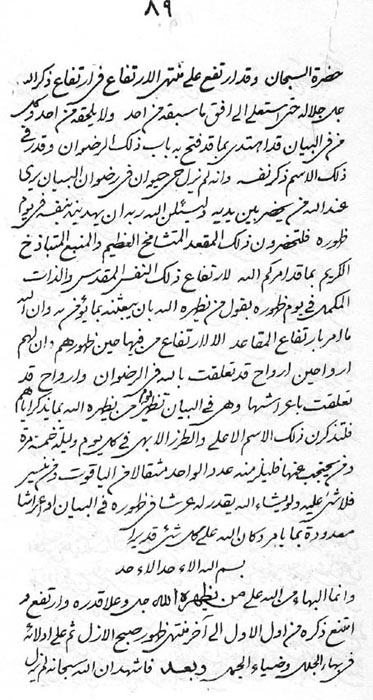 ٨٩
حضرة السبحان وقد ارتفع على منتهى الارتفاع في ارتفاع ذكر الله
جل جلاله حتى استعلى الى افق ما سبقه من احد ولا يلحقه من احد وكل
من في البيان قد اهتدى بما قد فتح به باب ذلك الرضوان وقدر في
ذلك الاسم ذكر نفسه وانه لم يزل حي حيوان في رضوان البيان يرى
عند الله من يحضر بين يديه وليسئلن الله ربه ان يهدينه بنفسه في يوم
ظهوره فلتحضرون ذلك المقعد المتشامخ العظيم والمنيع المتباذخ
الكريم بما قد امركم الله لارتفاع ذلك النفس المقدس والذات
المكمل في يوم ظهوره بقول من يظهره الله بان يبعثنه بما يؤمن به وان الله
ما امر بارتفاع المقاعد الا لارتفاع من فيها حين ظهورهم وان لهم
ارواحين ارواح قد تعلقت بالله في الرضوان وارواح قد
تعلقت باعراشها وهي في البيان تنظر يوم من يظهره الله بما يذكر اياهم
فلتذكرن ذلك الاسم الاعلى والطرز الابهى في كل يوم وليلة خمسة مرة
ومن يحتجب عنها فليلزمنه عدد الواحد مثقالا من الياقوت ومن نسي
فلا شئ عليه ولو يشاء الله يقدر له عرشا في ظهوره في البيان او اعراشا
معدودة بما يامر وكان الله على كل شئ قديرا
بسم الله الاوحد الاوحد
وانما البهاء من الله على من يظهره الله جل وعلا قدره وارتفع و
امتنع ذكره من اول الاول الى آخر منتهى ظهور صبح الازل ثم على ادلائه
في بهاء الجلى وضياء الجمى وبعد فاشهد ان الله سبحانه لم يزل